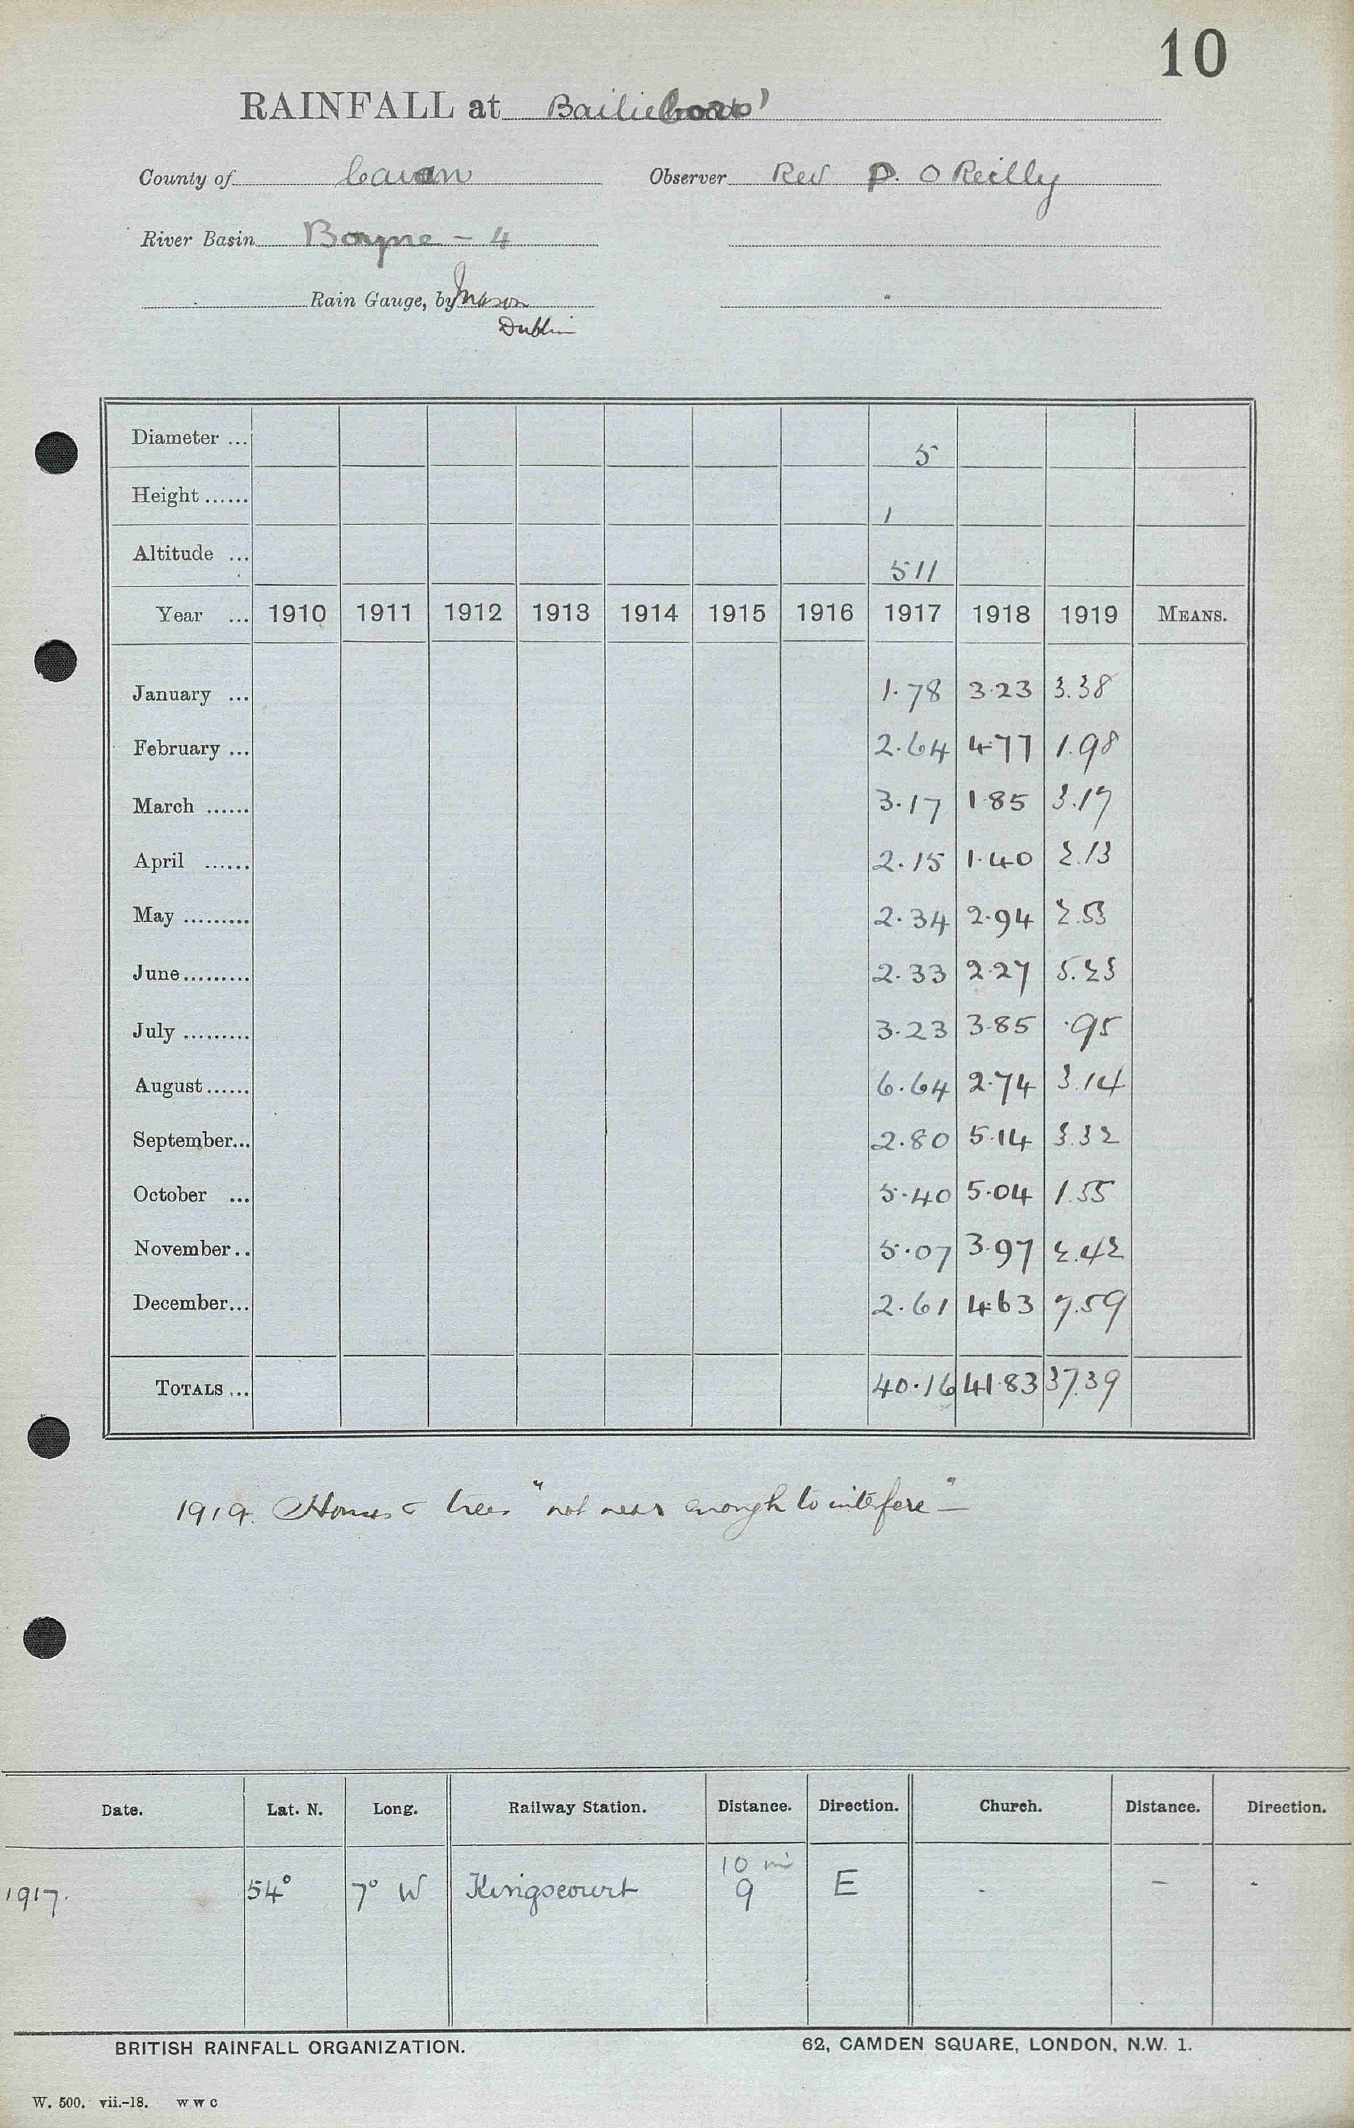 10
RAINFALL at Bailieboro'
County of Cavan Observer Rev P. O Reilly
River Basin Boyne - 4
Rain Gauge, by Mason
Dublin
Diameter ... 5
Height ...... 1
Altitude ... 511
Year ... 1910 1911 1912 1913 1914 1915 1916 1917 1918 1919 MEANS.
January ... 1.78 3.23 3.38
February ... 2.64 4.77 1.98
March ...... 3.17 1.85 3.17
April ...... 2.15 1.40 2.13
May ......... 2.34 2.94 2.53
June ......... 2.33 2.27 5.23
July ......... 3.23 3.85 .95
August ...... 6.64 2.74 3.14
September... 2.80 5.14 3.32
October ... 5.40 5.04 1.55
November .. 5.07 3.97 2.42
December... 2.61 4.63 7.59
TOTALS ... 40.16 41.83 37.39
1919. Houses & trees "not near enough to interfere" -
Date. Lat. N. Long. Railway Station. Distance. Direction. Church. Distance. Direction.
10 mi
1917. 54° 7° W Kingscourt 9 E - - -
BRITISH RAINFALL ORGANIZATION. 62, CAMDEN SQUARE, LONDON, N.W. 1.
W. 500. vii.-18. W W C